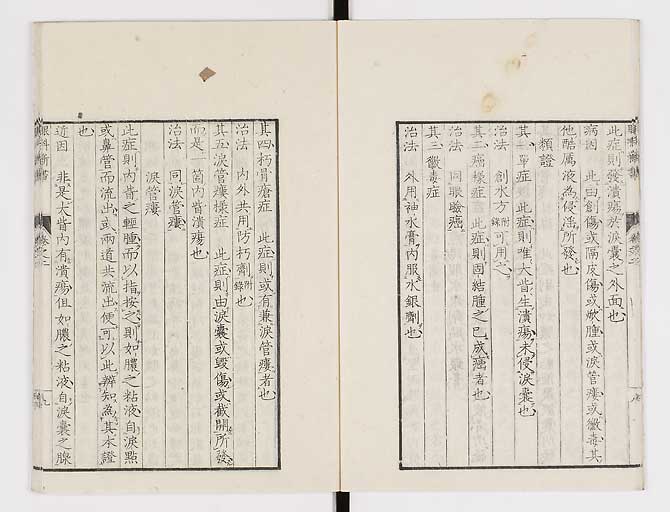 此症則發潰瘍於淚囊之外面也
病因 此由創傷或隔皮傷或焮腫或淚管瘻或黴毒其
他酷厲液為侵淫所發也
類證
其一單症 此症則唯大眥生潰瘍未侵淚囊也
治法 創水方附錄可用之
其二癌樣症 此症則固結腫之已成癌者也
治法 同眼瞼癌
其三黴毒症
治法 外用神水膏內服水銀劑也
其四朽骨瘡症 此症則或有兼淚管瘻者也
治法 內外共用防朽劑附錄也
其五淚管瘻樣症 此症則由淚囊或毀傷或截開所發
而是一箇內眥潰瘍也
治法 同淚管瘻
淚管瘻
此症則內眥之輕腫而以指按之則如膿之粘液自淚點
或鼻管而流出或兩道共流出便可以此辨知為其本證
也
近因 非是大眥內有潰瘍但如膿之粘液自淚囊之腺
眼科新書 卷之二 九